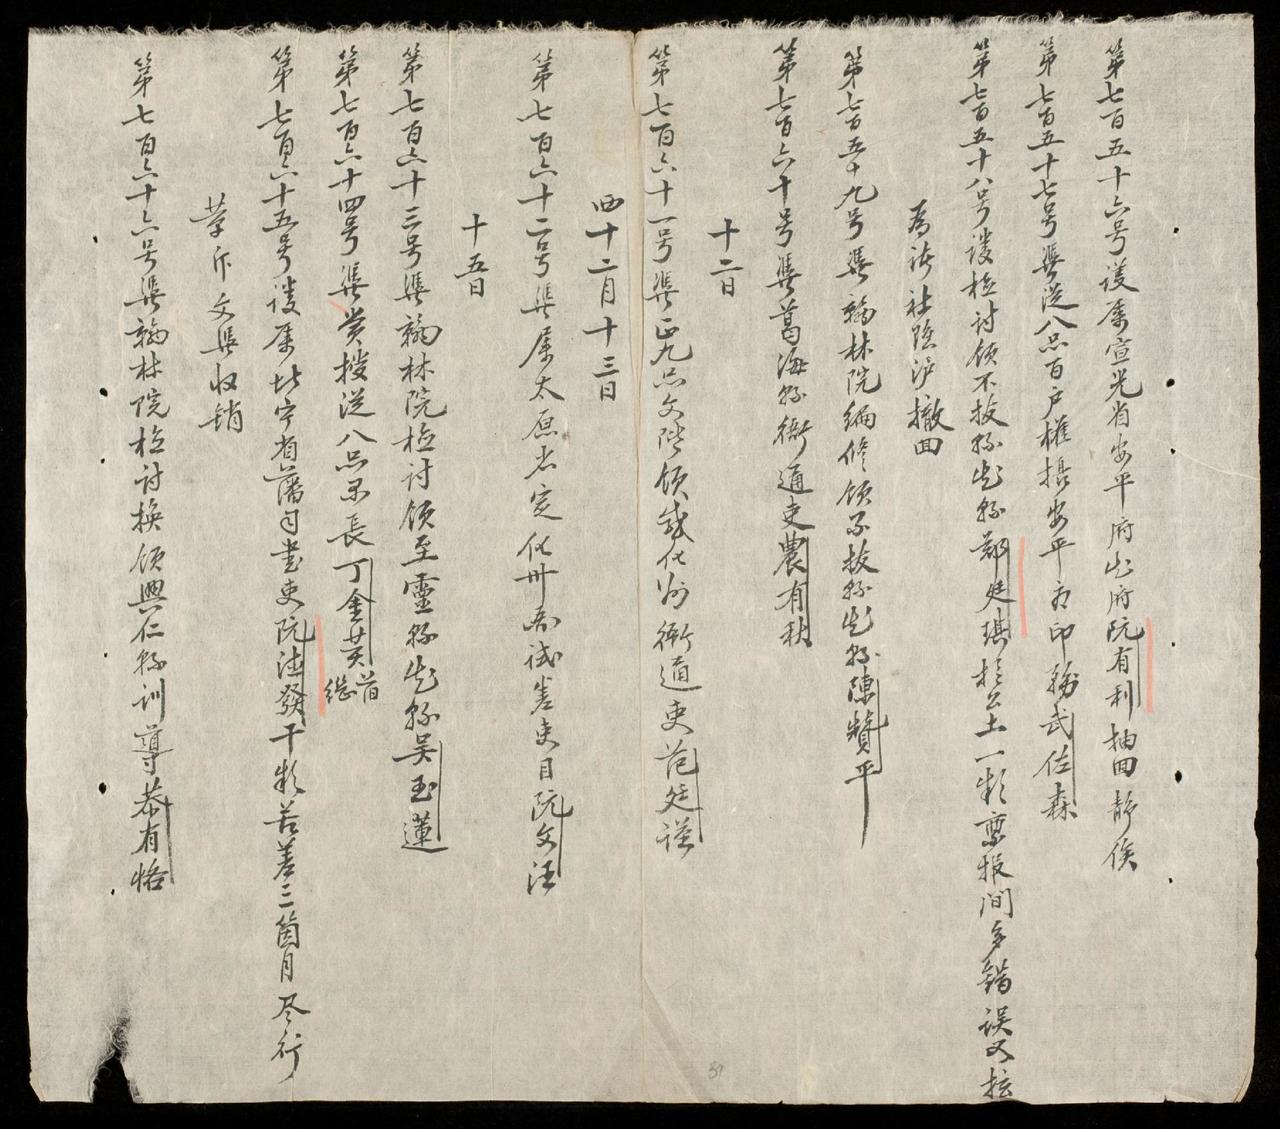 第七百五十六号議属宣光省安平府知府阮有利抽回靜俟
第七百五十七号憑從八品百戶權攝安平府印務武佐森
第七百五十八号議檢討領不拔縣知縣鄭廷琪於公土一款稟报間多錯誤又
社滬撤回
第七百五十九号憑翰林院編修領不拔縣知縣陳贊平
第七百六十号憑葛海縣衙通吏農有秋
十二日
第七百六十一号憑正九品文階領感化州衙通吏范廷謹
西十二月十三日
第七百六十二号憑属太原省定化州試差吏目阮文汪
十五日
第七百六十三号憑翰林院檢討領至靈縣知縣吳玉蓮
第七百六十四号憑賞授從八品里長丁金英
第七百六十五号議属北宁省藩司書吏阮德發干款苦差三箇月尽行
革斥文憑收销
第七百六十六号憑翰林院檢討換領興仁縣訓導恭有恪